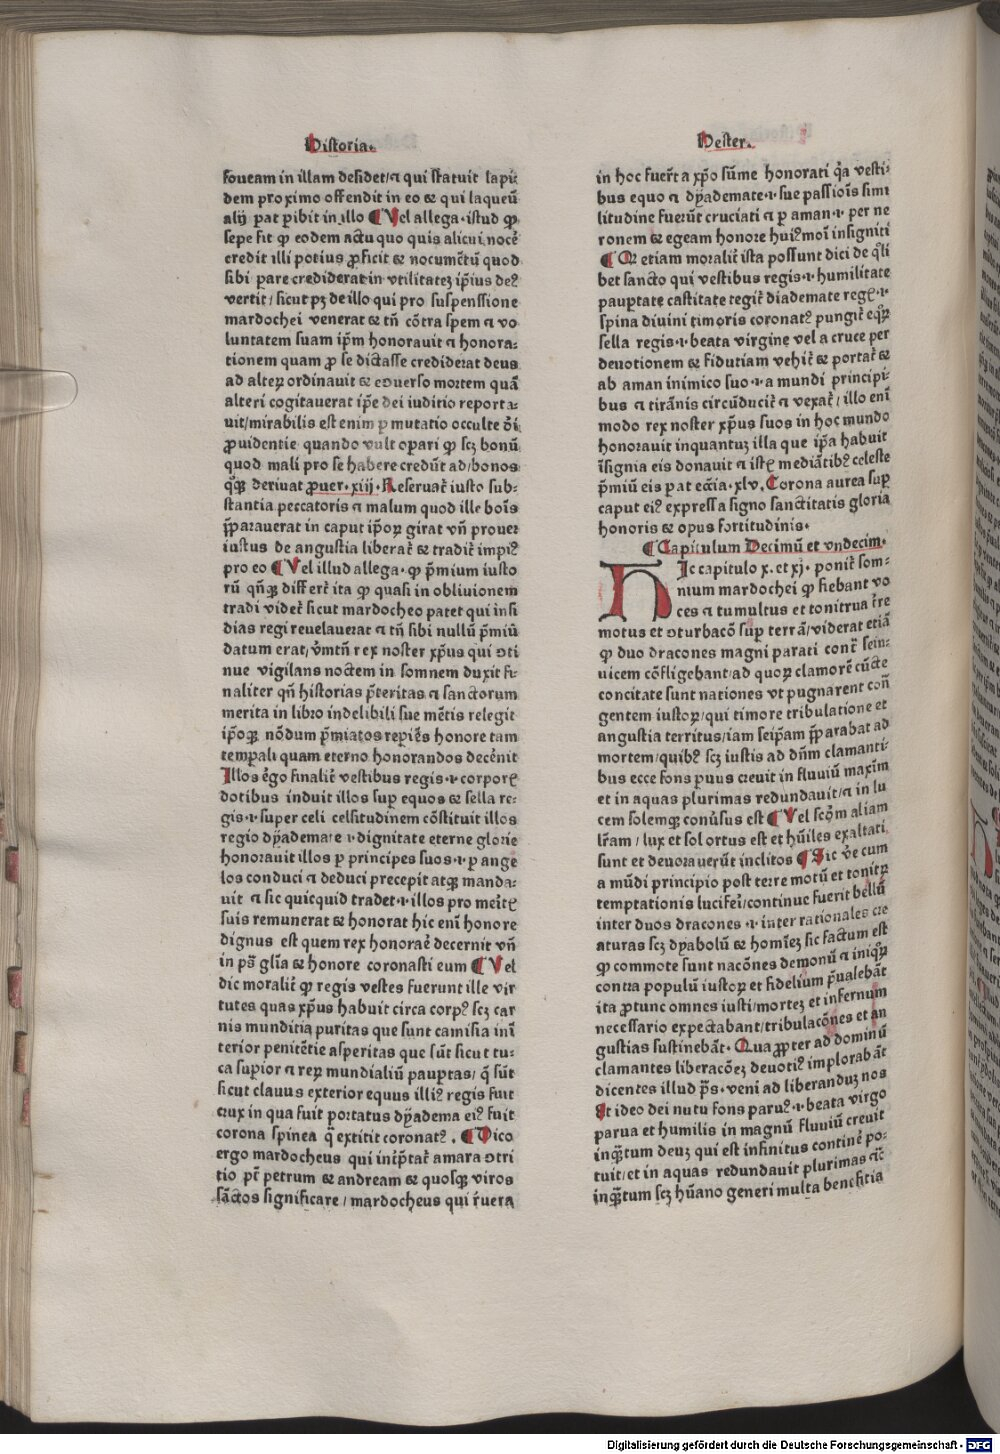 Historia.
foueam in illam desidet/⁊ qui statuit lapi:
dem proximo offendit in eo & qui laqueū
alij parat pibit in illo ¶ Vel allega·istud ꝙ
sepe fit ꝙ eodem actu quo quis alicui nocē
credit illi potius ꝓficit & nocumētū quod
sibi parare crediderat in vtilitatez ipsius deꝰ
vertit/sicut pꝫ de illo qui pro suspensione
mardochei venerat & tn̄ cōtra spem ⁊ vo
luntatem suam ipm̄ honorauit ⁊ honora:
tionem quam ꝓ se dictasse crediderat deus
ad alteꝝ ordinauit & ecōuerso mortem quā
alteri cogitauerat ip̄e dei iuditio reporta:
uit/mirabilis est enim pmutatio occulte dī
ꝓuidentie quando vult opari ꝙ scꝫ bonū
quod mali pro se habere credūt ad/bonos
qn̄qꝫ deriuat ꝓuer·xiij·Reseruat̄ iusto sub:
stantia peccatoris ⁊ malum quod ille bois
ꝓparauerat in caput ipoꝝ girat vn̄ prouer
iustus de angustia liberat̄ & tradit̄ impiꝰ
pro eo ¶ Vel illud allega·ꝙ p̄mium iusto
rū qn̄qꝫ differt̄ ita ꝙ quasi in obliuionem
tradi videt̄ sicut mardocheo patet qui insi
dias regi reuelauerat ⁊ tn̄ sibi nullū p̄miū
datum erat/vēmtn̄ rex noster xp̄us qui ɔti
nue vigilans noctem in somnem duxit fi:
naliter qn̄ historias p̄teritas ⁊ sanctorum
merita in libro indelibili sue mētis relegit
ip̄oqꝫ nōdum p̄miatos repiēs honore tam
tempali quam eterno honorandos decēnit
Illos ergo finalit̄ vestibus regis·i·corpore
dotibus induit illos sup equos & sella re:
gis·i·super celi celsitudinem cōstituit illos
regio dyademate·i·dignitate eterne glorie
honorauit illos p principes suos·i·p ange
los conduci ⁊ deduci precepit atqꝫ manda:
uit ⁊ sic quicquid tradet·i·illos pro merite
suis remunerat & honorat hic enī honore
dignus est quem rex honorare decernit vn̄
in ps̄ glīa & honore coronasti eum ¶ Vel
dic moralit̄ ꝙ regis vestes fuerunt ille vir
tutes quas xp̄us habuit circa corpꝰ scꝫ car
nis munditia puritas que sunt camisia inī
terior penitētie asperitas que sūt sicut tu:
ca supior ⁊ reꝝ mundialiū pauptas/q̄ sūt
sicut clauus exterior equus illiꝰ regis fuit
crux in qua fuit portatus dyadema eiꝰ fuit
corona spinea q̄ extitit coronatꝰ. ¶ Dico
ergo mardocheus qui int̄ptat̄ amara ɔtri
tio pt̄ petrum & andream & quosqꝫ viros
sāctos significare/mardocheus qui fuera
Hester.
in hoc fuerūt a xp̄o sūme honorati q̄a vesti:
bus equo ⁊ dyademate·i·sue passiōis simi
litudine fuerūt cruciati ⁊ p aman·i·per ne
ronem & egeam honore huiꝰmoi insigniti
¶ Et etiam moralit̄ ista possunt dici de qͥli
bet sancto qui vestibus regis·i·humilitate
pauptate castitate tegit̄ diademate rege·i·
spina diuini timoris coronatꝰ pungit̄ equꝫ
sella regis·i·beata virgine vel a cruce per
deuotionem & fidutiam vehit̄ & portat̄ &
ab aman inimico suo·i·a mundi principi:
bus ⁊ tirānis circūducit̄ ⁊ vexat̄/illo enī
modo rex noster xp̄us suos in hoc mundo
honorauit inquantuꝫ illa que ip̄a habuit
īsignia eis donauit ⁊ iste mediātibꝰ celeste
p̄miū eis parat eccīa·xlv.Corona aurea sup
caput eiꝰ expressa signo sanctitatis gloria
honoris & opus fortitudinis.
¶ Capitulum Decimū et vndecim.
HIc capitulo x. et xj. ponit̄ som:
nium mardochei ꝙ fiebant vo
ces ⁊ tumultus et tonitrua t̄re
motus et ɔturbacō sup terrā/viderat etiā
ꝙ duo dracones magni parati cont̄ sein:
uicem cōfligebant/ad quoꝝ clamorē cūcte
concitate sunt nationes vt pugnarent con̄
gentem iustoꝝ/qui timore tribulatione et
angustia territus/iam seipam p̄parabat ad
mortem/quibꝰ scꝫ iustis ad dn̄m clamanti:
bus ecce fons paruus creuit in fluuiū maxīm
et in aquas plurimas redundauit/⁊ in lu
cem solemqꝫ conūsus est ¶ Vel scōm aliam
lr̄am/lux et sol ortus est et hūiles exaltati
sunt et deuorauerūt inclitos ¶ Sic vē cum
a mūdi principio post terre motū et tonitꝝ
temptationis luciferi/continue fuerit bellū
inter duos dracones·i·inter rationales cre
aturas scꝫ dyabolū & hoīeꝫ sic factum est
ꝙ commote sunt nacōnes demonū ⁊ iniqꝫ
contra populū iustoꝝ et fidelium p̄ualebāt
ita ꝓtunc omnes iusti/morteꝫ et infernum
necessario expectabant/tribulacōnes et an
gustias sustinebāt·Qua ꝓpter ad dominū
clamantes liberacōeꝫ deuotiꝰ implorabāt
dicentes illud ps̄·veni ad liberanduꝫ nos
Et ideo dei nutu fons paruꝰ·i·beata virgo
parua et humilis in magnū fluuiū creuit
inqꝫtum deuꝫ qui est infinitus continē po:
tuit/et in aquas redundauit plurimas
inqꝫtum scꝫ hūano generi multa benefitia
Digitalisierung gefördert durch die Deutsche Forschungsgemeinschaft - DFG